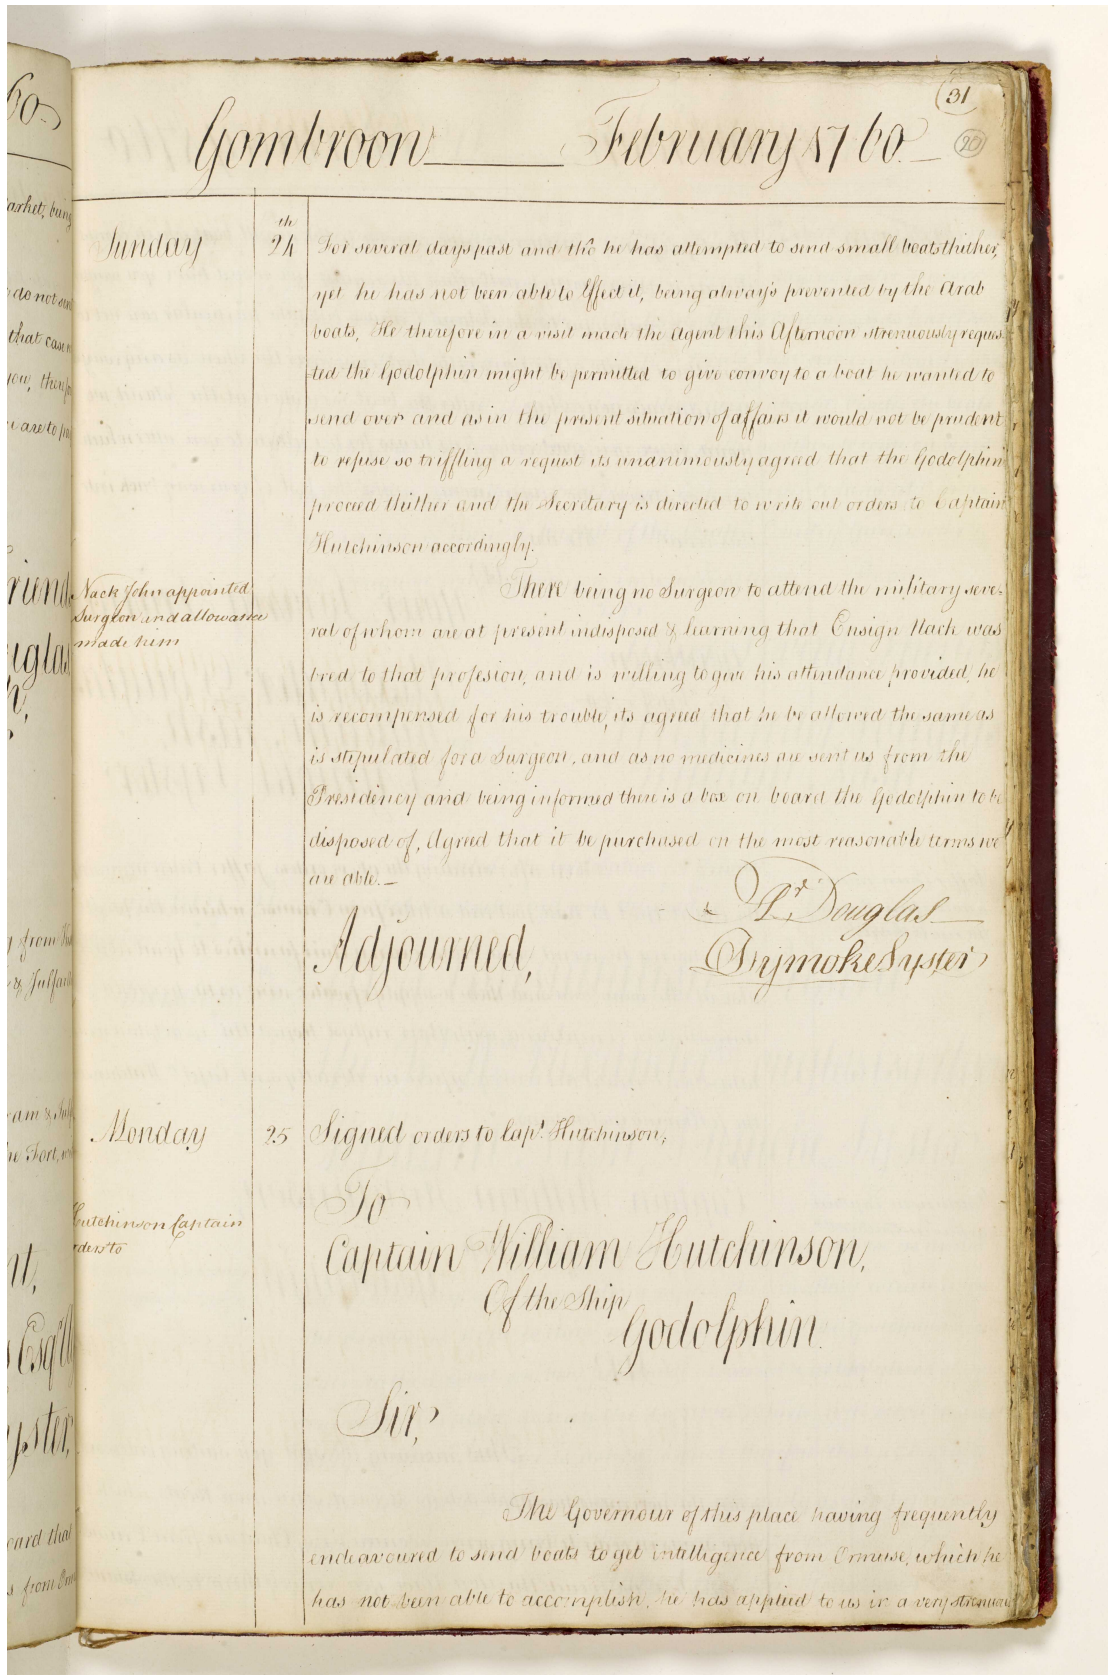 (31
20
Gombroon February 1760.
Sunday 24th For several days past and tho he has attempted to send small boats thither,
yet he has not been able to Effect it, being always prevented by the Arab
boats, He therefore in a visit made the Agent this Afternoon strenuously reques-
-ted the Godolphin might be permitted to give convoy to a boat he wanted to
send over and as in the present situation of affairs it would not be prudent
to refuse so triffling a request its unanimously agreed that the Godolphin
proceed thither and the Secretary is directed to write out orders to Captain
Hutchinson accordingly.
Nack John appointed
Surgeon and allowance
made him
There being no Surgeon to attend the military seve-
ral of whom are at present indisposed & learning that Ensign Nack was
bred to that profesion, and is willing to give his attendance provided, he
is recompensed for his trouble, its agreed that he be allowed the same as
is stipulated for a Surgeon, and as no medicines are sent us from the
Presidency and being informed there is a box on board the Godolphin to be
disposed of, Agreed that it be purchased on the most reasonable terms we
are able.—
Adjourned,
Ar. Douglas
Drymoke Lyster
Monday 25 Signed orders to Capt. Hutchinson;
Hutchinson Captain
orders to
To
Captain William Hutchinson,
Of the Ship
Godolphin.
Sir,
The Governour of this place having frequently
endeavoured to send boats to get intelligence from Ormuse, which he
has not been able to accomplish, he has applied to us in a very strenuous